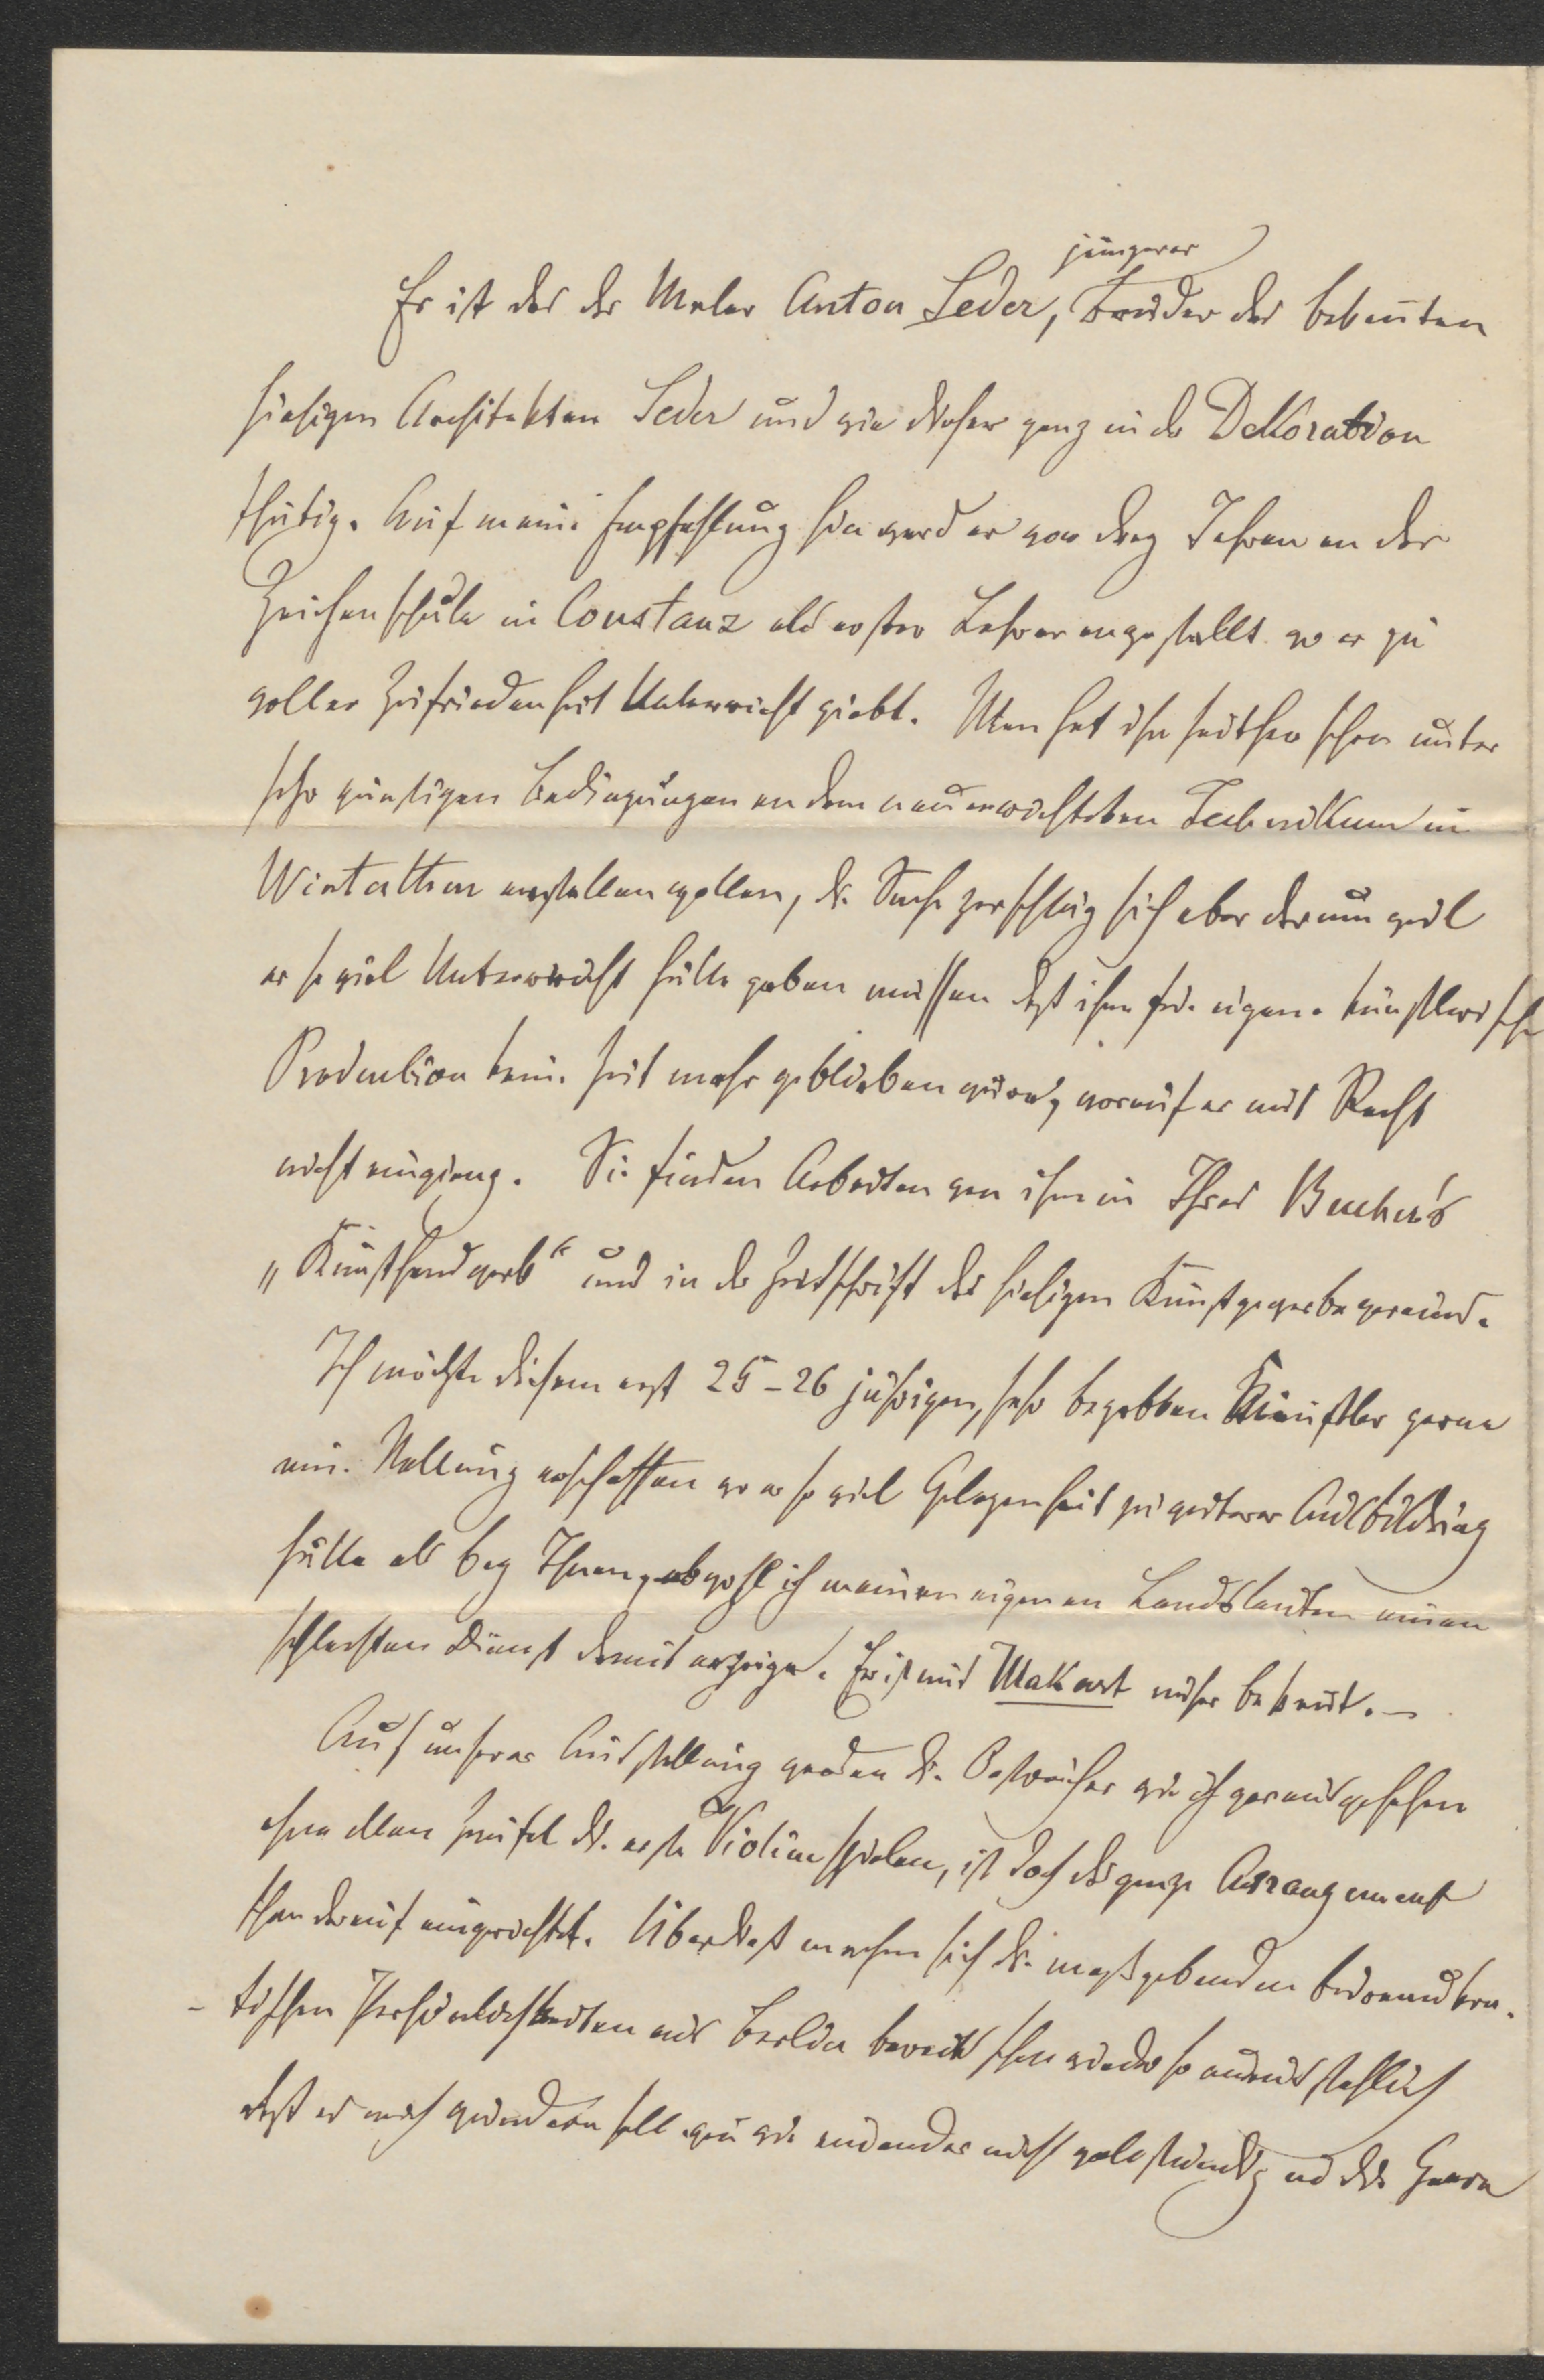 jüngerer
Es ist das der Maler Anton Seder, Bruder des bekannten
hiesigen Architekten Seder und wie dieser ganz in der Dekoration
thätig. Auf meine Empfehlung hin ward er vor drey Jahren an der
Zeichenschule in Constanz als erster Lehrer angestellt wo er zu
voller Zufriedenheit Unterricht giebt. Man hat ihn seither schon unter
sehr günstigen Bedingungen an dem neuerrichteten Technikum in
Winterthur anstellen wollen, die Sache zerschlug sich aber darum weil
er so viel Unterricht hätte geben müssen daß ihm für eigene künstlerische
Production keine Zeit mehr geblieben wäre, worauf er mit Recht
nicht eingieng. Sie finden Arbeiten von ihm in Ihres Bucher's
„Kunsthandwerk“ und in der Zeitschrift des hiesigen Kunstgewerbevereins.
Ich möchte diesem erst 25-26 jährigen, sehr begabten Künstler gerne
eine Stellung verschaffen wo er so viel Gelegenheit zu weiterer Ausbildung
hätte als bey Ihnen, obwohl ich meinen eigenen Landsleuten einen
schlechten Dienst damit erzeige. Er ist mit Makart näher bekannt. –
Auf unserer Ausstellung werden die Oestreicher wie ich vorausgesehen
ohne allen Zweifel die erste Violine spielen, ist doch das ganze Arrangement
schon darauf eingerichtet. Überdieß machen sich die maßgebenden bureaukra-
-tischen Persönlichkeiten aus Berlin bereits schon wieder so unausstehlich
daß es mich wundern soll wenn wir einander nicht vollständig in die Haare